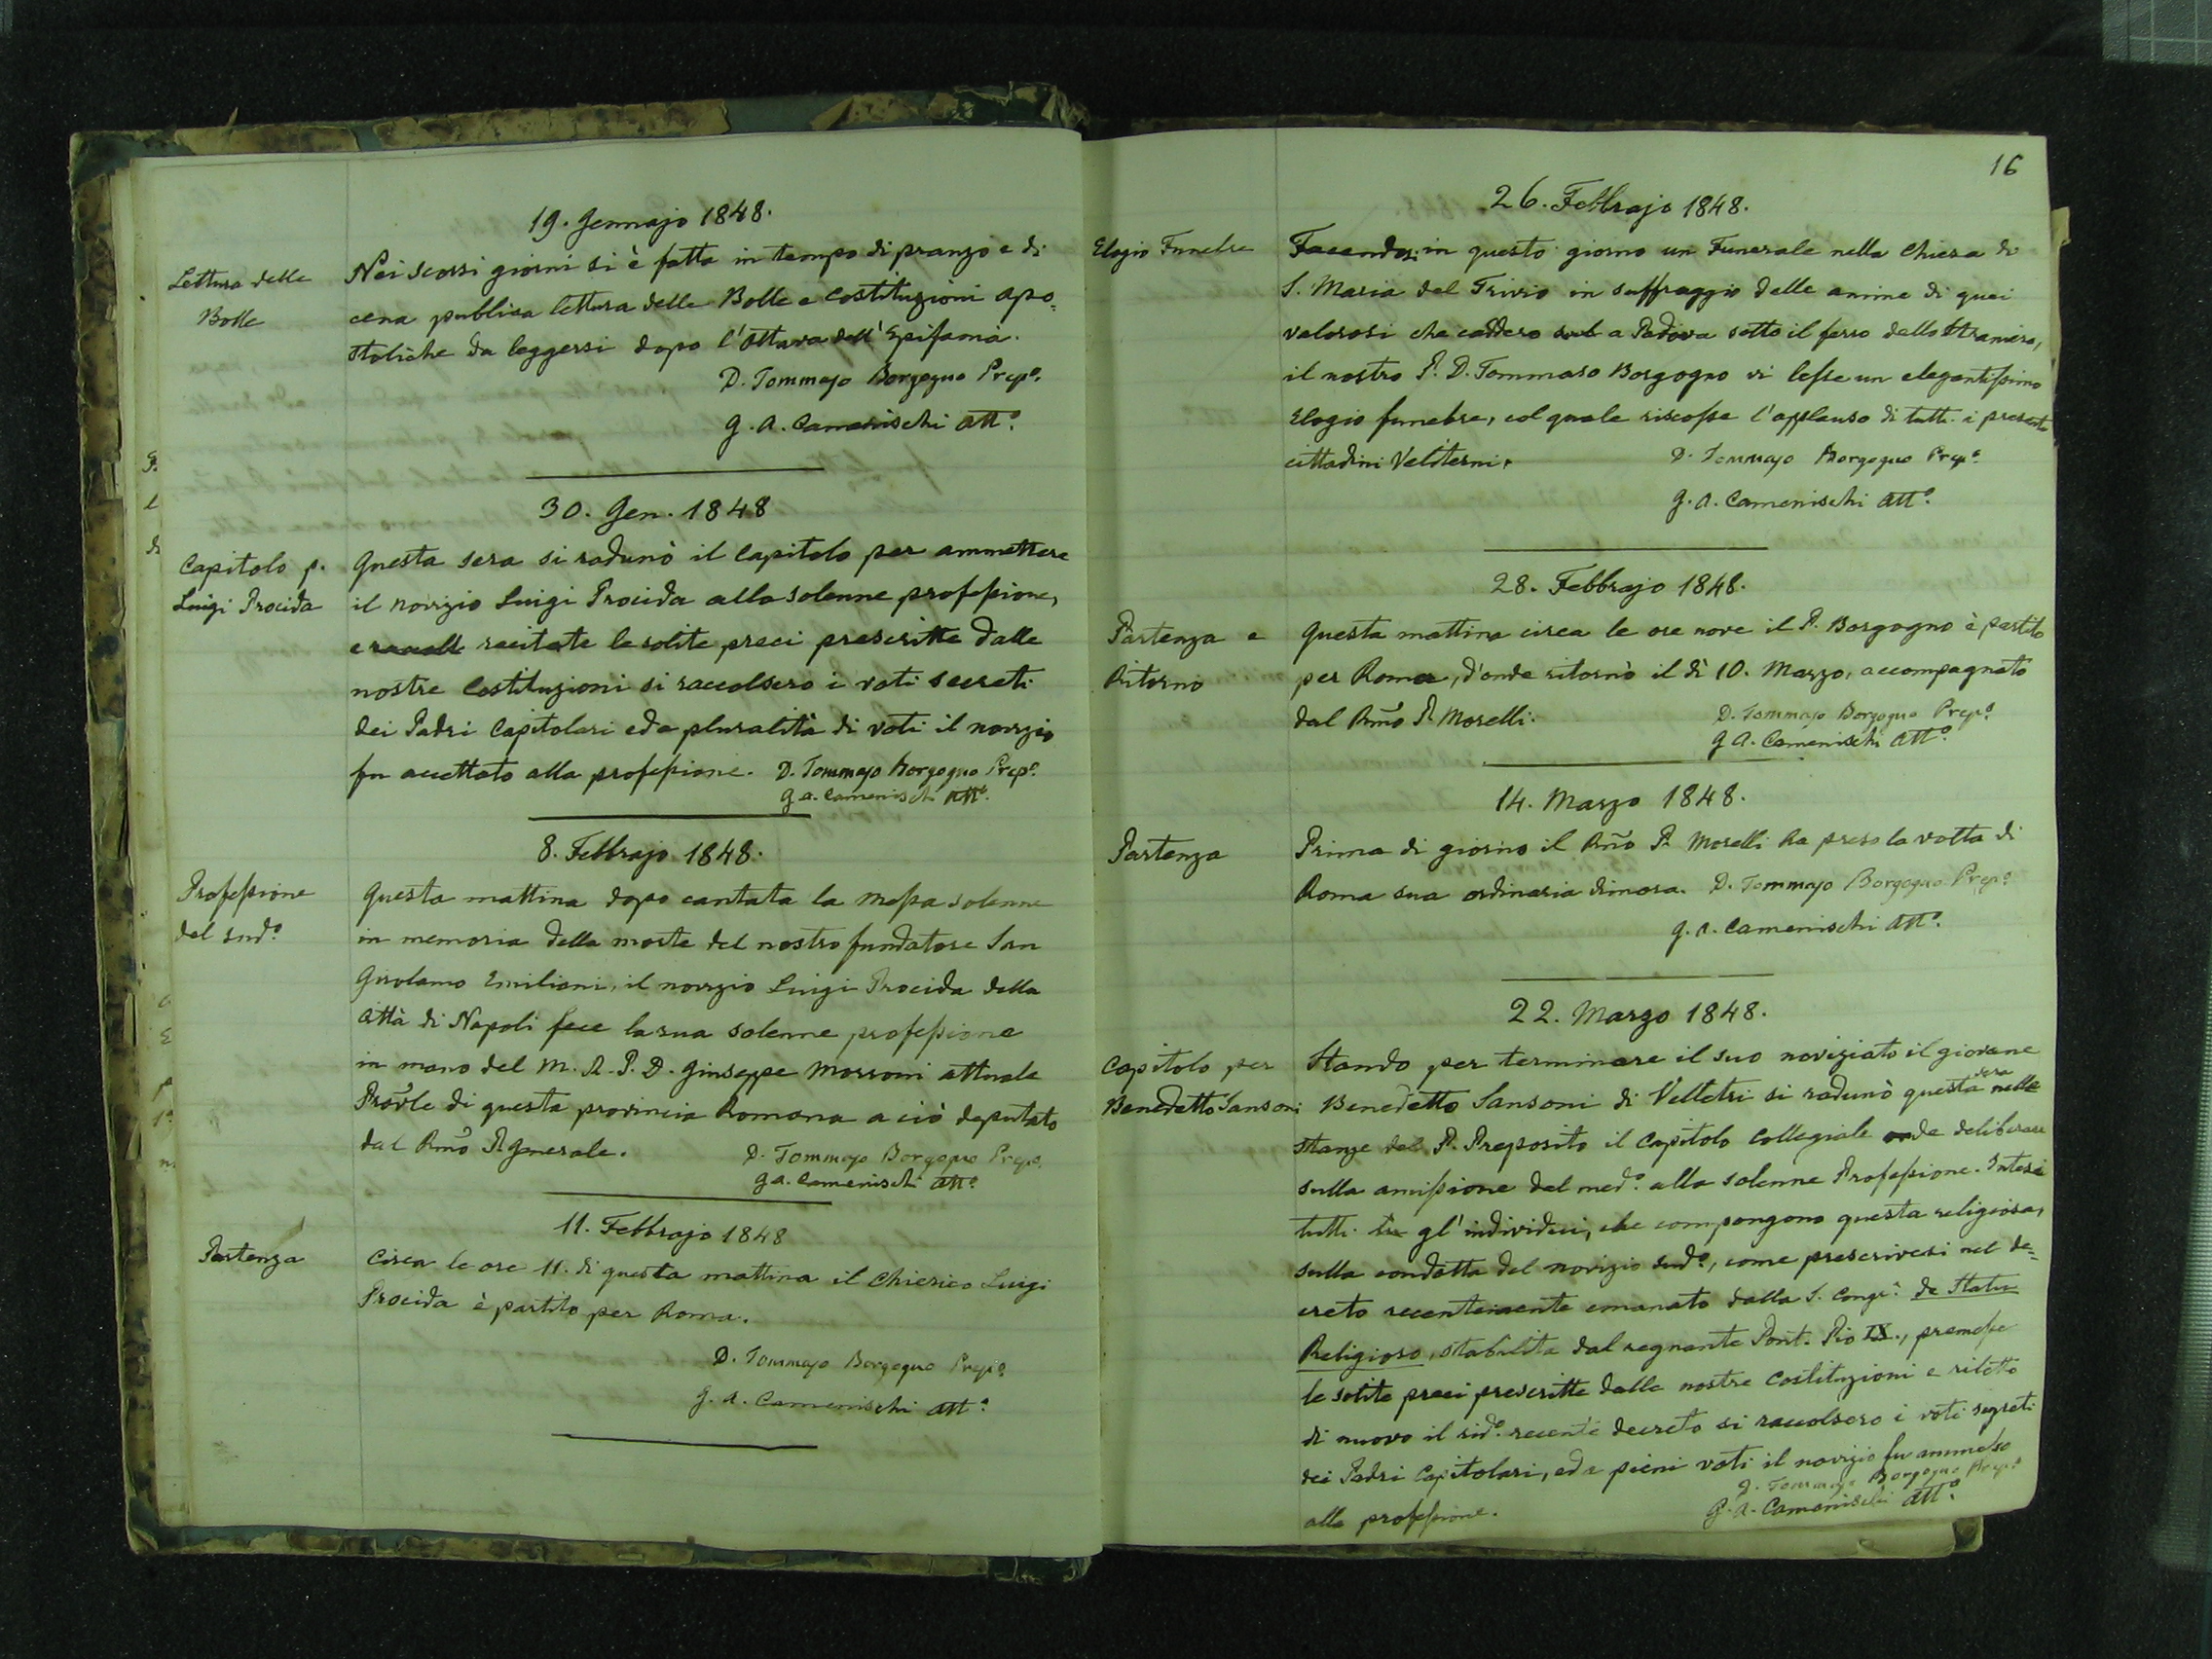 19. Gennajo 1848.
Lettura delle
Bolle
Nei scorsi giorni si è fatta in tempo di pranzo e di
cena publica lettura delle Bolle e costituzioni apo=
stoliche da leggersi dopo l'Ottava dell'Epifania.
D. Tommaso Borgogno Prepo.
G. A. Camenischi Atto.
30. Gen. 1848
Capitolo p.
Luigi Procida
Questa sera si radunò il Capitolo per ammettere
il novizio Luigi Procida alla solenne professione,
e recitate le solite preci prescritte dalle
nostre Costituzioni si raccolsero i voti secreti
dei Padri Capitolari ed a pluralità di voti il novizio
fu accettato alla professione. D. Tommaso Borgogno Prepo.
G. A. Camenischi Atto.
8. Febbrajo 1848.
Professione
del sudo.
Questa mattina dopo cantata la Messa solenne
in memoria della morte del nostro fundatore San
Girolamo Emiliani, il novizio Luigi Procida della
Città di Napoli fece la sua solenne professione
in mano del M. R. P. D. Giuseppe Morroni attuale
Provle di questa provincia Romana a ciò deputato
dal Rmo P. Generale. D. Tommaso Borgogno Prepo.
G. A. Camenischi Atto.
11. Febbrajo 1848
Partenza
Circa le ore 11. di questa mattina il Chierico Luigi
Procida è partito per Roma.
D. Tommaso Borgogno Prepo.
G. A. Camenischi Atto.
16
26. Febbrajo 1848.
Elogio Funebre
Facendosi in questo giorno un Funerale nella Chiesa di
S. Maria del Trivio in suffraggio delle anime di quei
valorosi che caddero a Padova sotto il ferro dello Straniero,
il nostro P. D. Tommaso Borgogno vi lesse un elegantissimo
Elogio funebre, col quale riscosse l'applauso di tutti i presenti
cittadini Veliterni. D. Tommaso Borgogno Prepo.
G. A. Camenischi Atto.
28. Febbrajo 1848.
Partenza e
Ritorno
Questa mattina circa le ore nove il P. Borgogno è partito
per Roma, d'onde ritornò il dì 10. Marzo, accompagnato
dal Rmo P. Morelli. D. Tommaso Borgogno Prepo.
G A. Camenischi Atto.
14. Marzo 1848.
Partenza
Prima di giorno il Rmo P. Morelli ha preso la volta di
Roma sua ordinaria dimora. D. Tommaso Borgogno Prepo.
G. A. Camenischi Atto.
22. Marzo 1848.
Capitolo per
Benedetto Sansoni
Stando per terminare il suo noviziato il giovane
Benedetto Sansoni di Velletri si radunò questa sera nelle
stanze del P. Preposito il Capitolo Collegiale onde deliberare
sulla amissione del medo. alla solenne Professione. Intesi
tutti gl'individui, che compongono questa religiosa,
sulla condotta del novizio sudo., come prescrivesi nel de=
creto recentemente emanato dalla S. Congr. de Statu
Religioso, stabilita dal regnante Pont. Pio IX., premesse
le solite preci prescritte dalle nostre Costituzioni e riletto
di nuovo il sido. recente decreto si raccolsero i voti segreti
dei Padri Capitolari, ed a pieni voti il novizio fu ammesso
alla professione. D. Tommaso Borgogno Prepo.
G. A. Camenischi Atto.